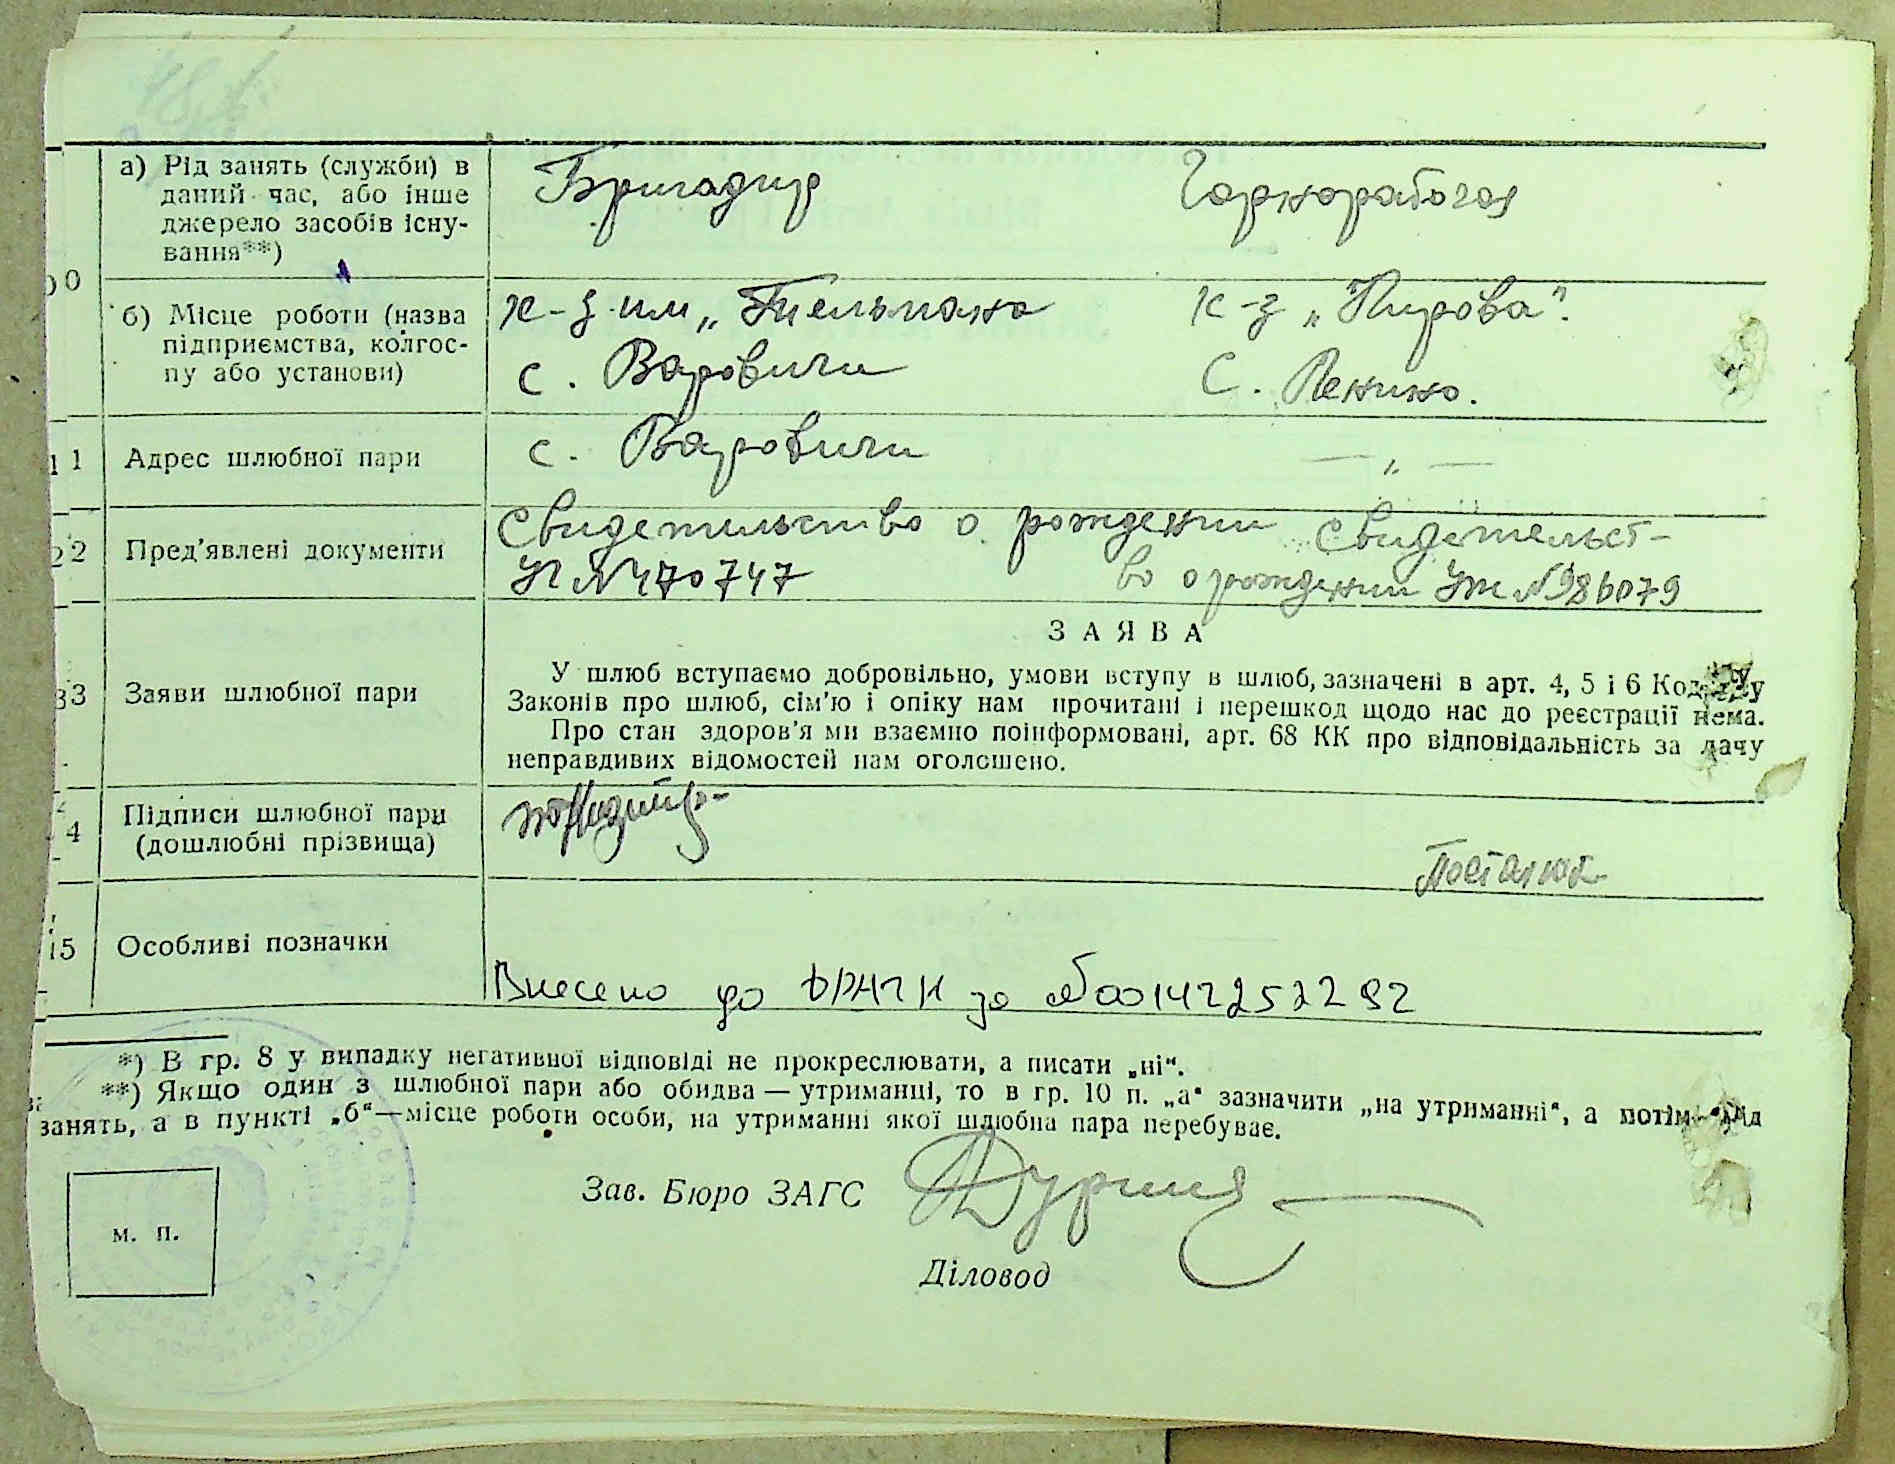 а) Рід занять (служби) в
даний час, або інше
джерело засобів існу-
вання**)
Бригадир
Чорнорабочая
0
б) Місце роботи (назва
підприємства, колгос-
пу або установи)
к-з им „Тельмана
с. Варовичи
к-з „Кирова".
с. Ленино.
11
Адрес шлюбної пари
с. Варовичи
— „ —
22
Пред'явлені документи
Свидетельство о рождении
№ 470747
Свидетельст-
во о рождении №986079
33
Заяви шлюбної пари
ЗАЯВА
У шлюб вступаємо добровільно, умови вступу в шлюб, зазначені в арт. 4, 5 і 6 Кодексу
Законів про шлюб, сім'ю і опіку нам прочитані і перешкод щодо нас до реєстрації нема.
Про стан здоров'я ми взаємно поінформовані, арт. 68 КК про відповідальність за дачу
неправдивих відомостей нам оголошено.
4
Підписи шлюбної пари
(дошлюбні прізвища)
15
Особливі позначки
Внесено до ДРАЦС за №00142252292
*) В гр. 8 у випадку негативної відповіді не прокреслювати, а писати „ні".
**) Якщо один з шлюбної пари або обидва — утриманці, то в гр. 10 п. „а" зазначити „на утриманні", а потім рід
занять, а в пункті „б"—місце роботи особи, на утриманні якої шлюбна пара перебуває.
Зав. Бюро ЗАГС
Діловод
м. п.